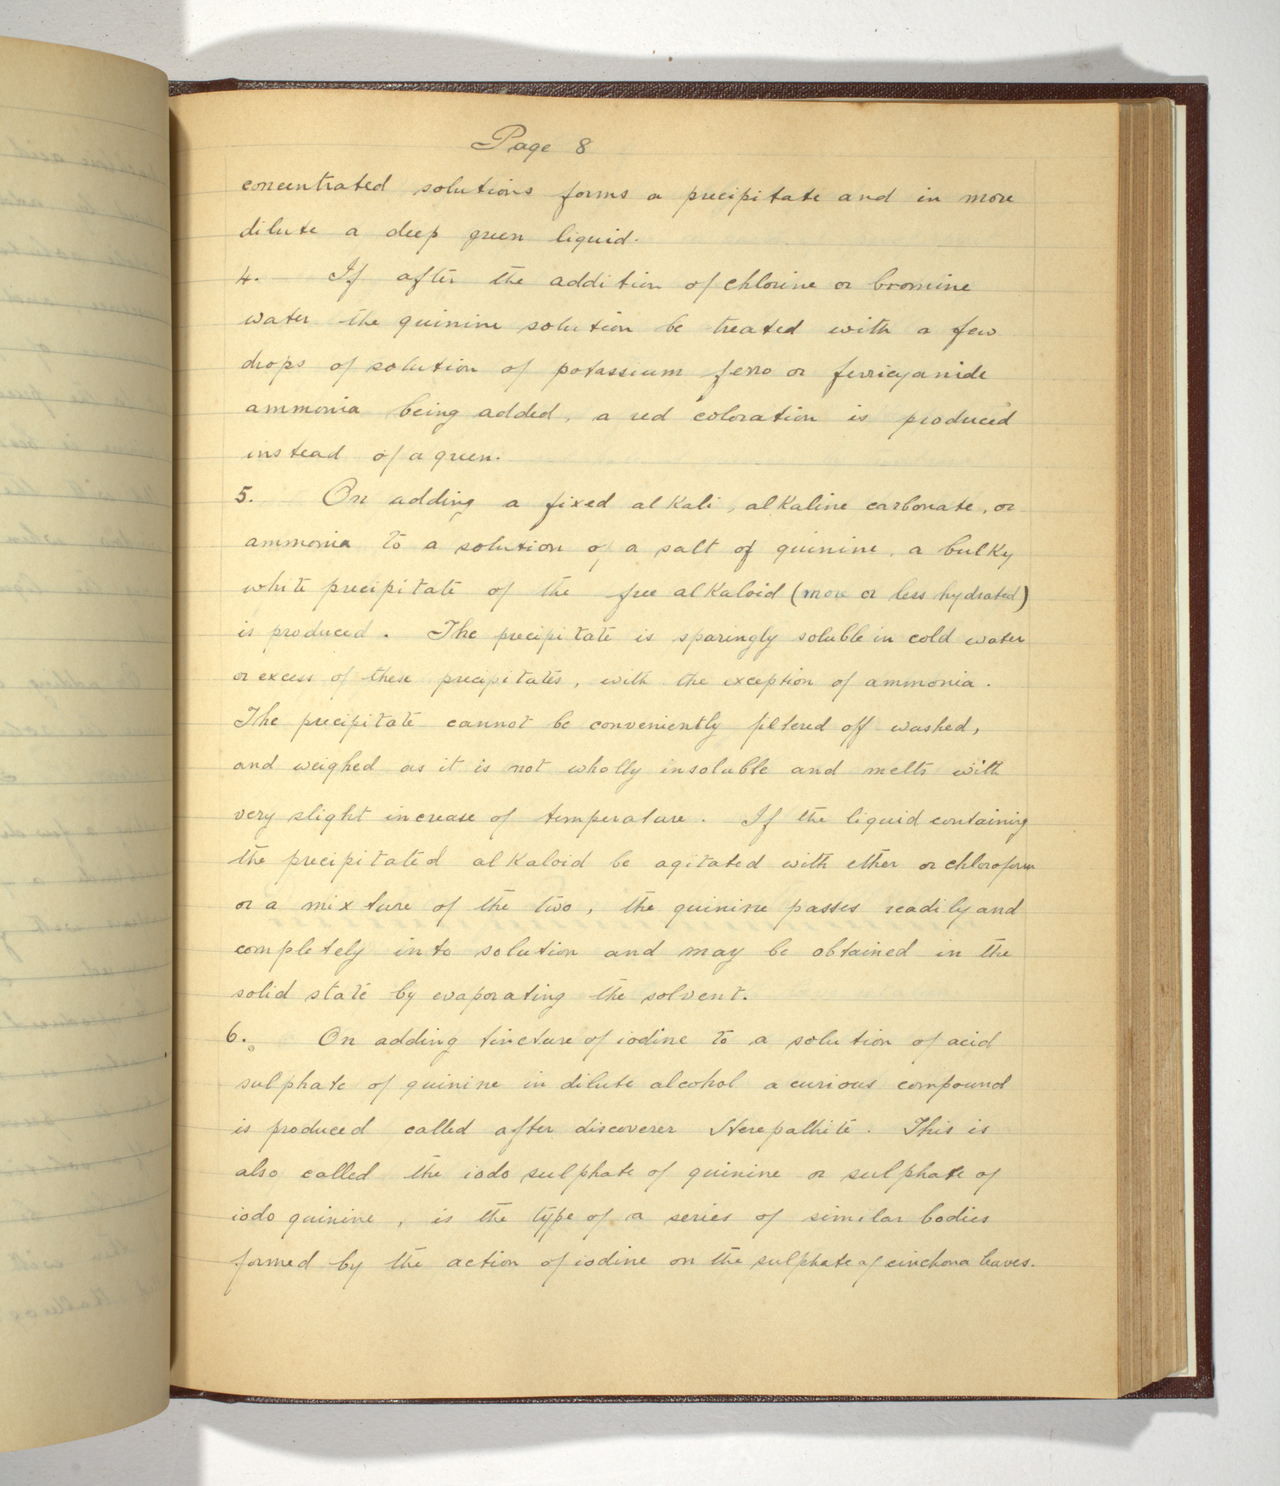 Page 8
concentrated solutions forms a precipitate and in more
dilute a deep green liquid.
4. If after the addition of chlorine or bromine
water the quinine solution be treated with a few
drops of solution of potassium ferro or ferricyanide
ammonia being added, a red coloration is produced
instead of a green.
5. On adding a fixed alkali, alkaline carbonate, or
ammonia to a solution of a salt of quinine, a bulky
white precipitate of the free alkaloid (more or less hydrated)
is produced. The precipitate is sparingly soluble in cold water
or excess of these precipitates, with the exception of ammonia.
The precipitate cannot be conveniently filtered off washed,
and weighed as it is not wholly insoluble and melts with
very slight increase of temperature. If the liquid containing
the precipitated alkaloid be agitated with ether or chloroform
or a mixture of the two, the quinine passes readily and
completely into solution and may be obtained in the
solid state by evaporating the solvent.
6. On adding tincture of iodine to a solution of acid
sulphate of quinine in dilute alcohol a curious compound
is produced called after discoverer Herepathite. This is
also called the iodo sulphate of quinine or sulphate of
iodo quinine, is the type of a series of similar bodies
formed by the action of iodine on the sulphate of cinchona leaves.